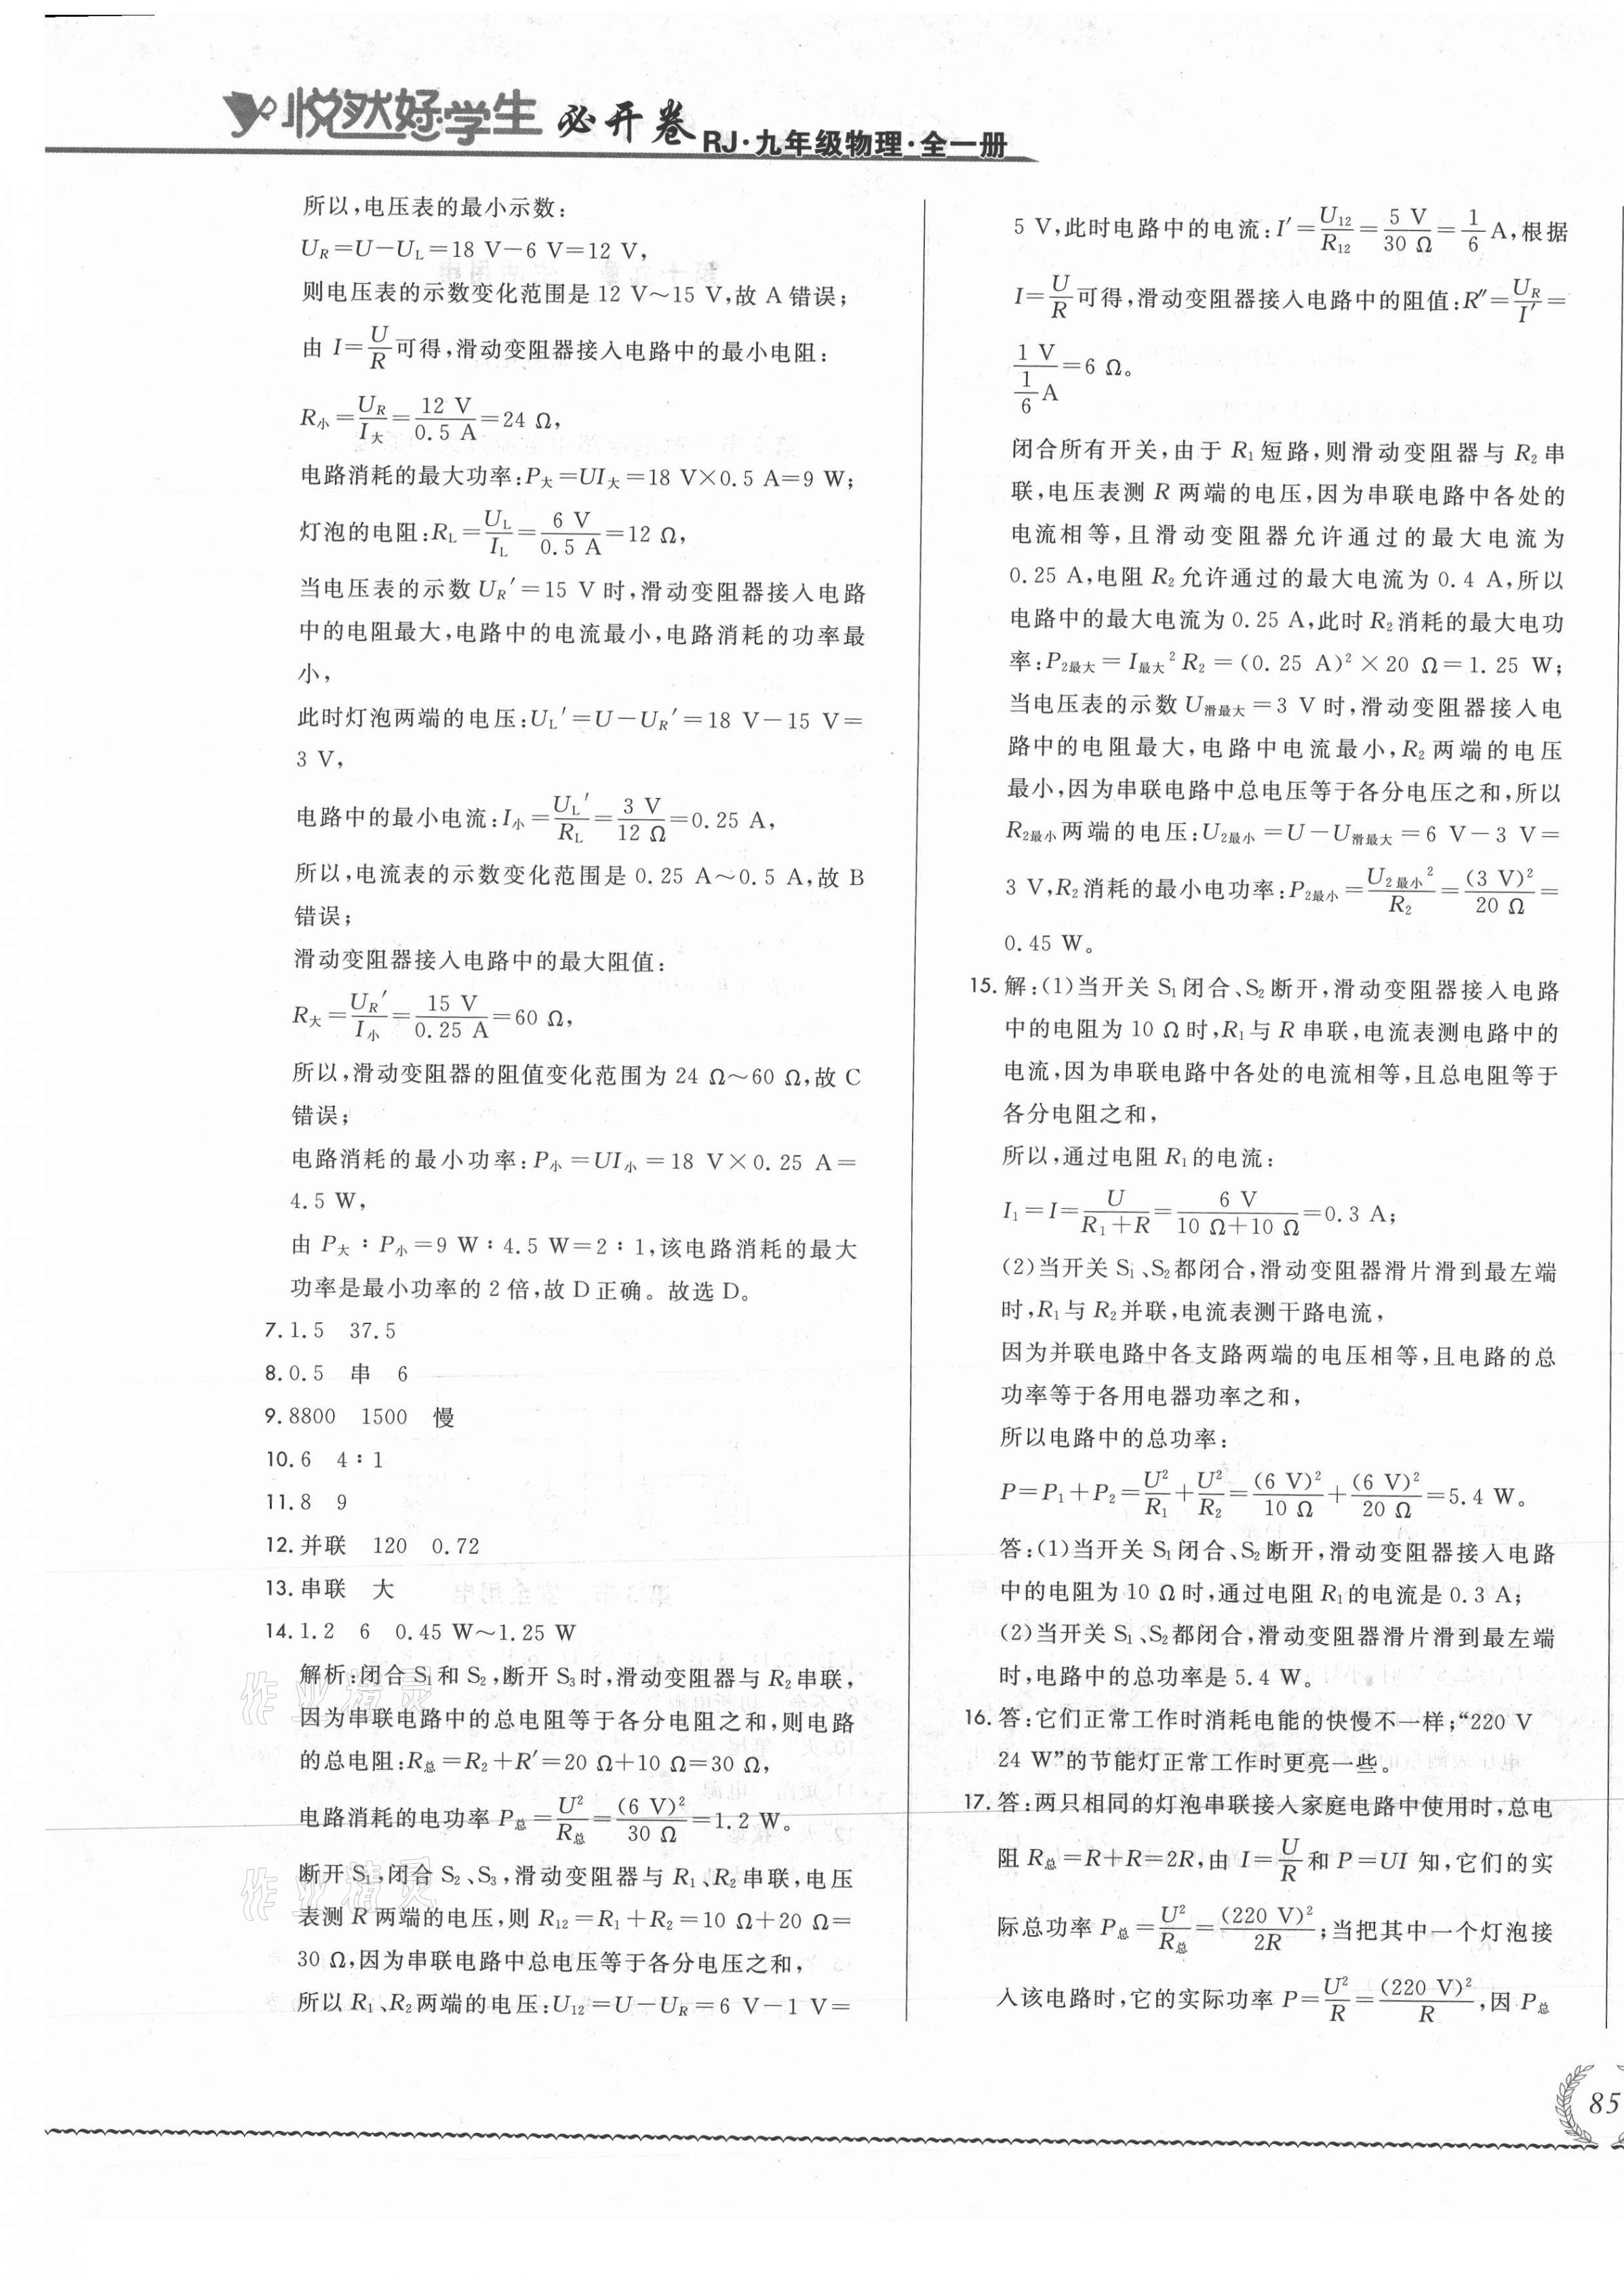 悦然好学生 必开卷 RJ·九年级物理·全一册
所以,电压表的最小示数:
U_R=U-U_L=18 V-6 V=12 V,
则电压表的示数变化范围是 12 V~15 V,故 A 错误;
由 I=U/R可得,滑动变阻器接入电路中的最小电阻:
R小=U_R/I大=12 V/0.5 A=24 Ω,
电路消耗的最大功率:P大=UI大=18 V×0.5 A=9 W;
灯泡的电阻:R_L=U_L/I_L=6 V/0.5 A=12 Ω,
当电压表的示数 U_R′=15 V 时,滑动变阻器接入电路
中的电阻最大,电路中的电流最小,电路消耗的功率最
小,
此时灯泡两端的电压:U_L′=U-U_R′=18 V-15 V=
3 V,
电路中的最小电流:I小=U_L′/R_L=3 V/12 Ω=0.25 A,
所以,电流表的示数变化范围是 0.25 A~0.5 A,故 B
错误;
滑动变阻器接入电路中的最大阻值:
R大=U_R′/I小=15 V/0.25 A=60 Ω,
所以,滑动变阻器的阻值变化范围为 24 Ω~60 Ω,故 C
错误;
电路消耗的最小功率:P小=UI小=18 V×0.25 A=
4.5 W,
由 P大∶P小=9 W∶4.5 W=2∶1,该电路消耗的最大
功率是最小功率的 2 倍,故 D 正确。故选 D。
7. 1.5 37.5
8. 0.5 串 6
9. 8800 1500 慢
10. 6 4∶1
11. 8 9
12. 并联 120 0.72
13. 串联 大
14. 1.2 6 0.45 W~1.25 W
解析:闭合 S₁和 S₂,断开 S₃时,滑动变阻器与 R₂串联,
因为串联电路中的总电阻等于各分电阻之和,则电路
的总电阻:R总=R₂+R′=20 Ω+10 Ω=30 Ω,
电路消耗的电功率 P总=U²/R总=(6 V)²/30 Ω=1.2 W。
断开 S₁,闭合 S₂、S₃,滑动变阻器与 R₁、R₂串联,电压
表测 R 两端的电压,则 R₁₂=R₁+R₂=10 Ω+20 Ω=
30 Ω,因为串联电路中总电压等于各分电压之和,
所以 R₁、R₂两端的电压:U₁₂=U-U_R=6 V-1 V=
5 V,此时电路中的电流:I′=U₁₂/R₁₂=5 V/30 Ω=1/6 A,根据
I=U/R可得,滑动变阻器接入电路中的阻值:R″=U_R/I′=
1 V/(1/6 A)=6 Ω。
闭合所有开关,由于 R₁短路,则滑动变阻器与 R₂串
联,电压表测 R 两端的电压,因为串联电路中各处的
电流相等,且滑动变阻器允许通过的最大电流为
0.25 A,电阻 R₂允许通过的最大电流为 0.4 A,所以
电路中的最大电流为 0.25 A,此时 R₂消耗的最大电功
率:P₂最大=I最大²R₂=(0.25 A)²×20 Ω=1.25 W;
当电压表的示数 U滑最大=3 V 时,滑动变阻器接入电
路中的电阻最大,电路中电流最小,R₂两端的电压
最小,因为串联电路中总电压等于各分电压之和,所以
R₂最小两端的电压:U₂最小=U-U滑最大=6 V-3 V=
3 V,R₂消耗的最小电功率:P₂最小=U₂最小²/R₂=(3 V)²/20 Ω=
0.45 W。
15. 解:(1)当开关 S₁闭合、S₂断开,滑动变阻器接入电路
中的电阻为 10 Ω时,R₁与 R 串联,电流表测电路中的
电流,因为串联电路中各处的电流相等,且总电阻等于
各分电阻之和,
所以,通过电阻 R₁的电流:
I₁=I=U/(R₁+R)=6 V/(10 Ω+10 Ω)=0.3 A;
(2)当开关 S₁、S₂都闭合,滑动变阻器滑片滑到最左端
时,R₁与 R₂并联,电流表测干路电流,
因为并联电路中各支路两端的电压相等,且电路的总
功率等于各用电器功率之和,
所以电路中的总功率:
P=P₁+P₂=U²/R₁+U²/R₂=(6 V)²/10 Ω+(6 V)²/20 Ω=5.4 W。
答:(1)当开关 S₁闭合、S₂断开,滑动变阻器接入电路
中的电阻为 10 Ω时,通过电阻 R₁的电流是 0.3 A;
(2)当开关 S₁、S₂都闭合,滑动变阻器滑片滑到最左端
时,电路中的总功率是 5.4 W。
16. 答:它们正常工作时消耗电能的快慢不一样;“220 V
24 W”的节能灯正常工作时更亮一些。
17. 答:两只相同的灯泡串联接入家庭电路中使用时,总电
阻 R总=R+R=2R,由 I=U/R和 P=UI 知,它们的实
际总功率 P总=U²/R总=(220 V)²/2R;当把其中一个灯泡接
入该电路时,它的实际功率 P=U²/R=(220 V)²/R,因 P总
85
作业精灵
作业精灵